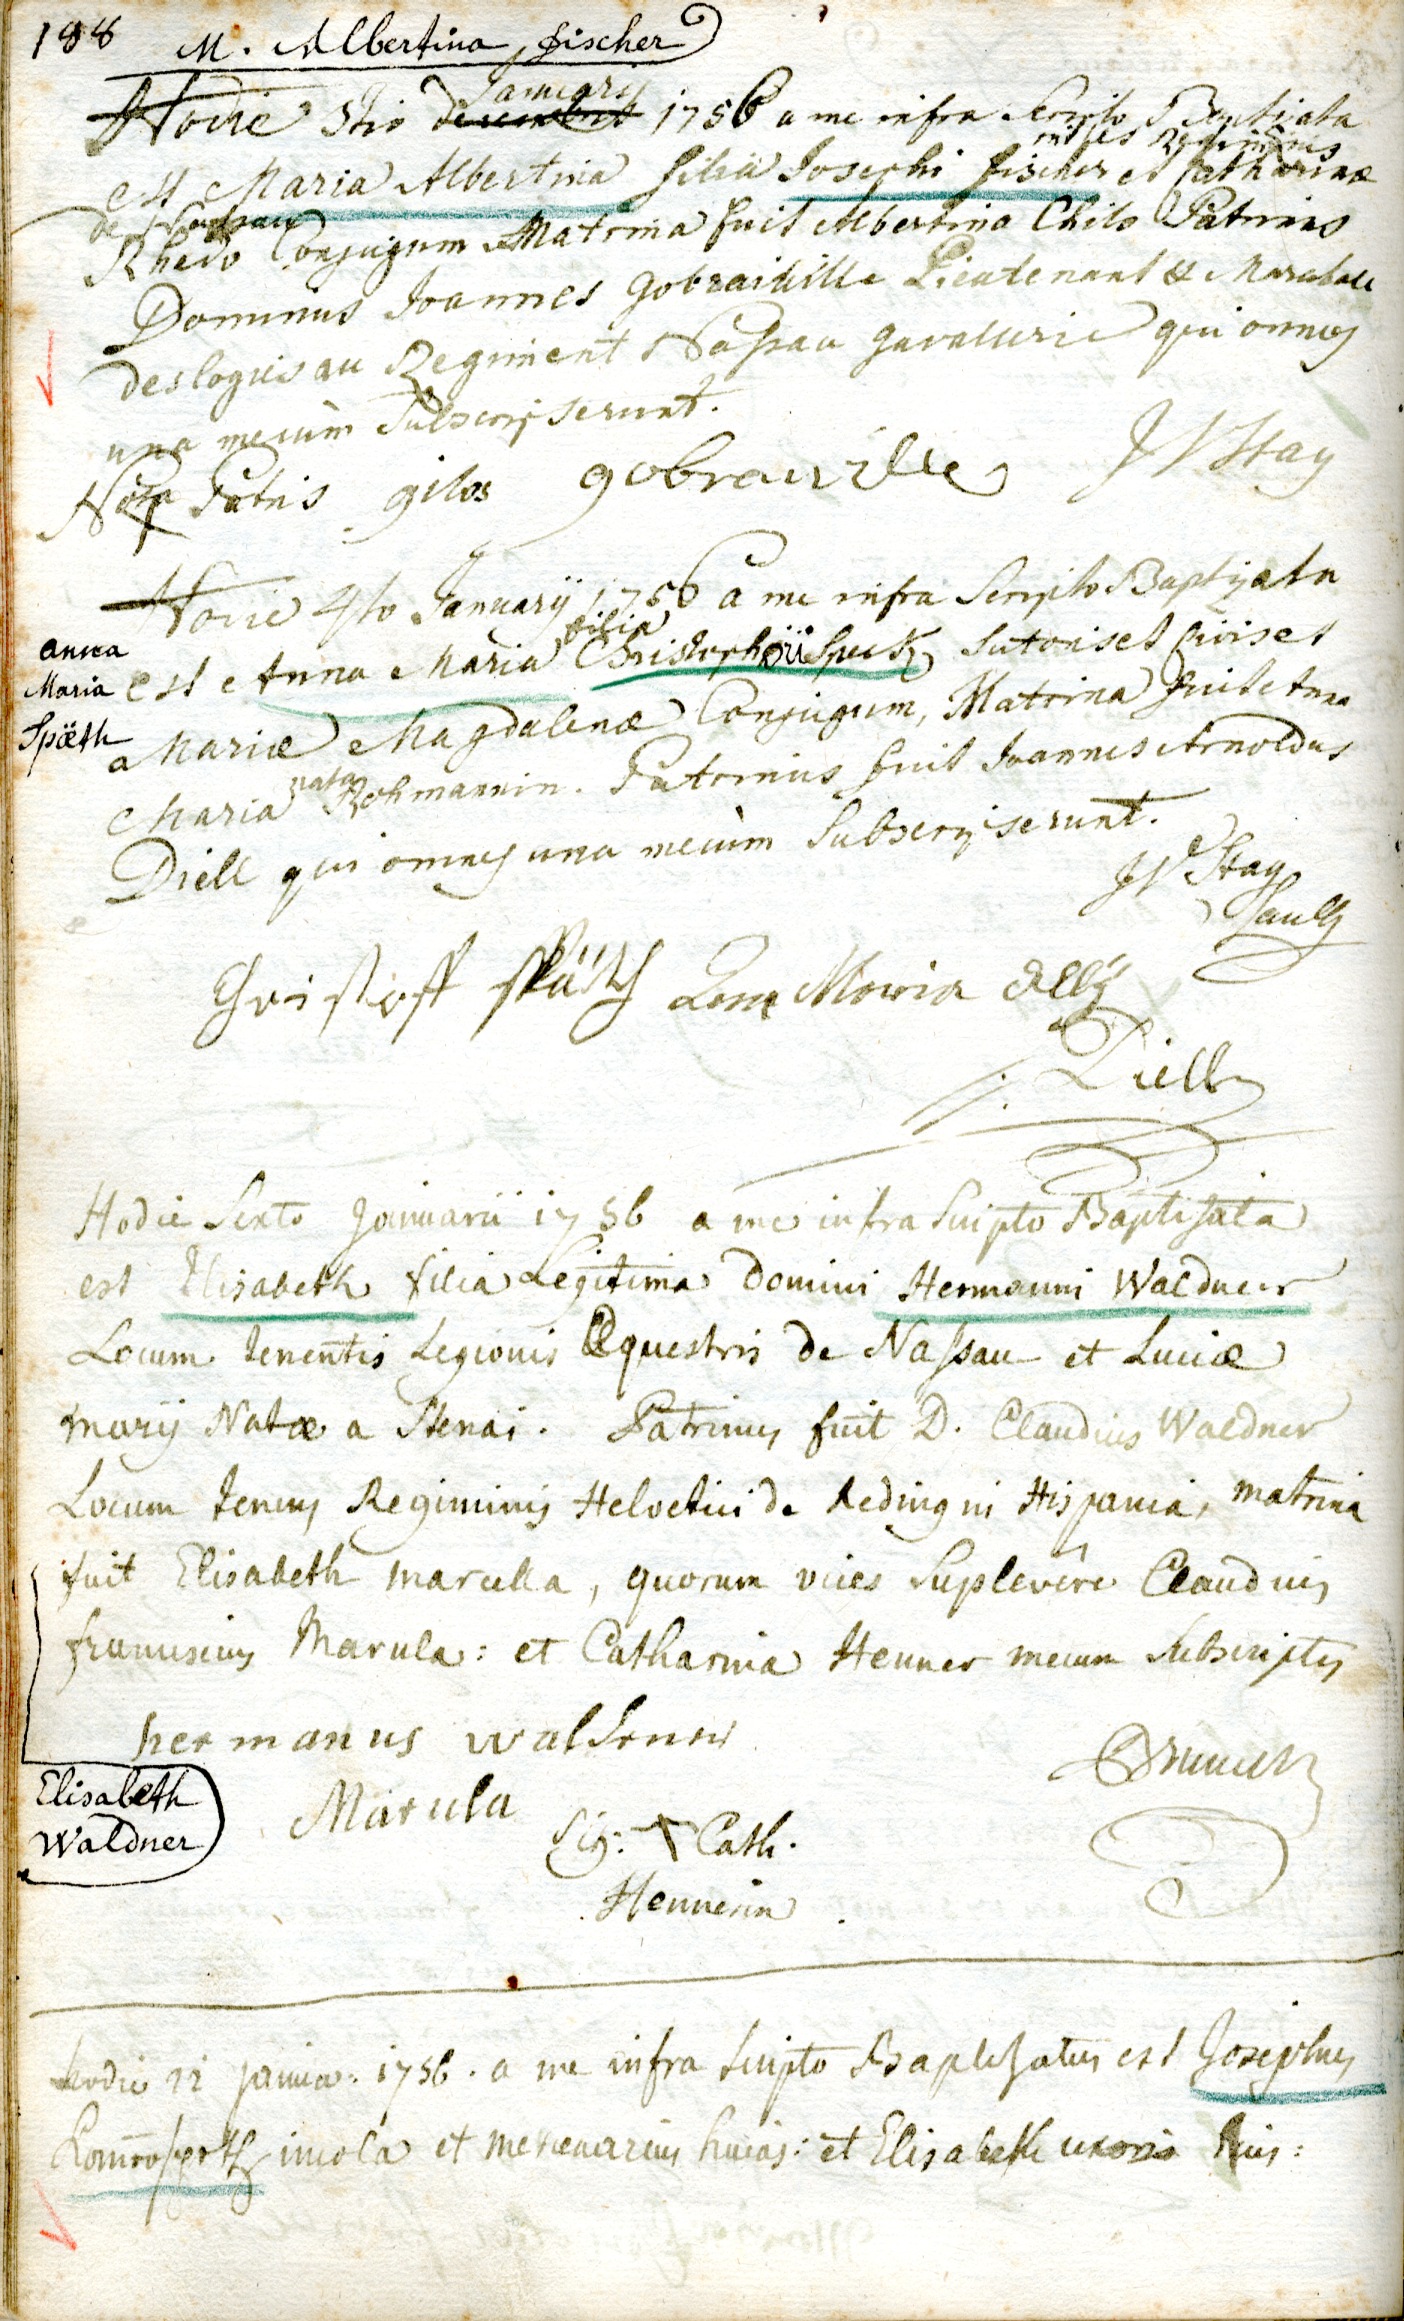 188 M. Albertina fischer
Januarij
Hodie 3tio decembris 1756 a me infra Scripto Baptizata
militis Regiminis
est Maria Albertina filia Josephi fischer et Catharinæ
de Nassau
Rhedo Conjugum Matrina fuit Albertina Chilo Patrinus
Dominus Joannes gobraiville Lieutenant & Marechale
deslogiis au Regiment Nassau Gavallerie qui omnes
una mecum Subscripserunt.
Nota Patris gilos gobrauville JW Stay
Hodie 4to Januarij 1756 a me infra Scripto Baptizata
filia
est Anna Maria Christophori Speck Sutoris et Civis et
Anna
Maria
Späth
Mariæ Magdalenæ Conjugum, Matrina fuit Anna
nata
Maria Rohmannin. Patrinus fuit Joannes Arnoldus
Diell qui omnes una mecum Subscripserunt.
JW Stay
Christoff Späth Maria
Diell
Hodie Sexto Januarii 1756 a me infra Scripto Baptisata
est Elisabeth filia Legitima Domini Hermanni Waldner
Locum tenentis Legionis Equestris de Nassau et Luciæ
mary Natæ a Stenai. Patrinus fuit D. Claudius Waldner
Locum tenens Regiminis Helvetici de Reding in Hispania, matrina
fuit Elisabeth Marcella, quorum vices Suplevêre Claudius
franciscus Marula: et Catharina Henner mecum Subscriptis
hermanus waldner
Elisabeth
Waldner
Marula
Sig: + Cath.
Hennerin
hodie 11 janua: 1756. a me infra Scripto Baptisatus est Josephus
incola et mercenarius huias: et Elisabeth uxoris Eius: